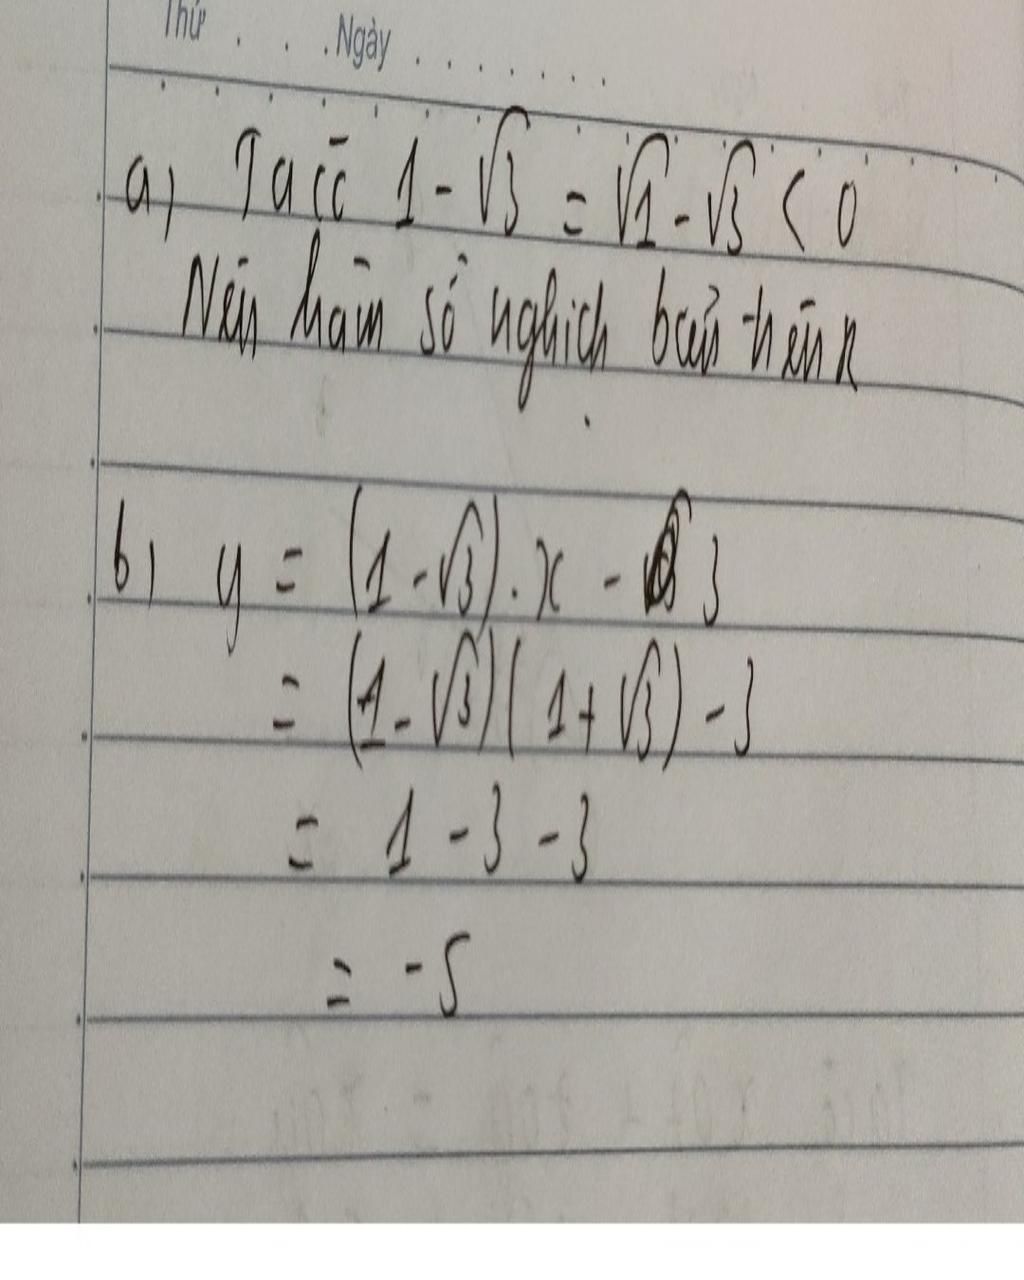 Thứ . . . Ngày . . . . . . .
a) Ta có 1 - √3 = √1 - √3 < 0
Nên hàm số nghịch biến trên R
b) y = (1 - √3) . x - 3
= (1 - √3)(1 + √3) - 3
= 1 - 3 - 3
= -5